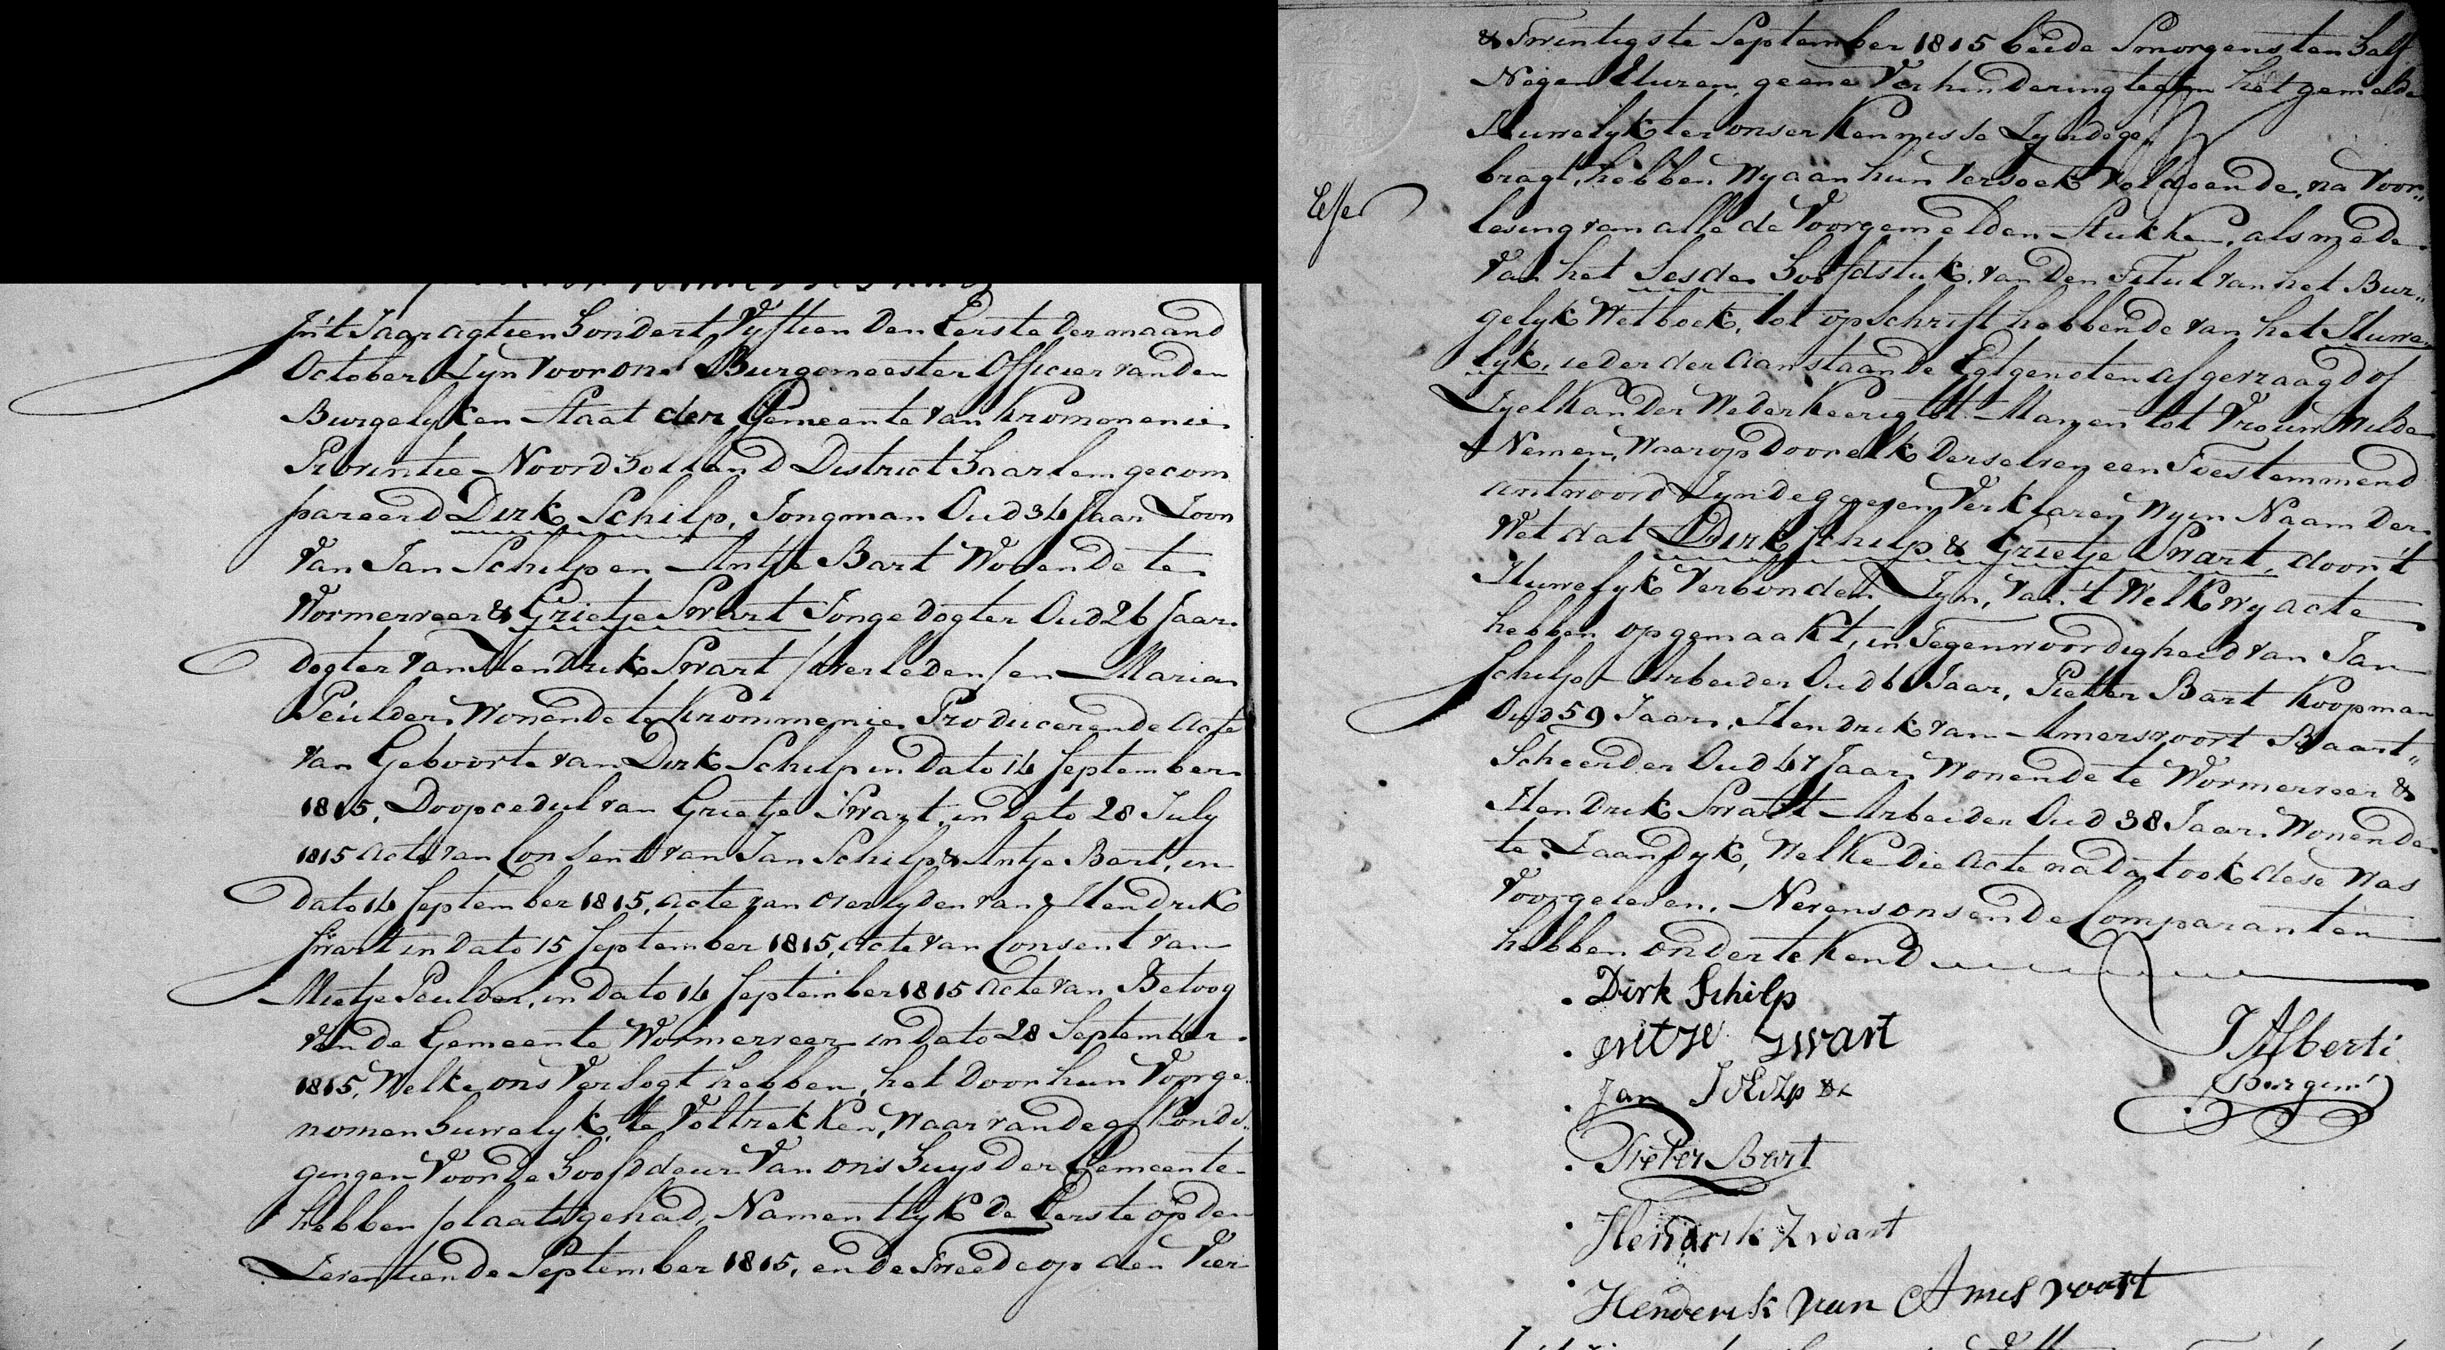 In't Jaar agtien Hondert Vyftien Den Eerste Der maand
October Zyn Voor ons Burgemeester Officier van den
Burgelyken Staat der Gemeente van Kromenenie
Provintie Noord Holland District Haarlem gecom
pareerd Dirk Schilp, Jongman Oud 34 Jaar Zoon
Van Jan Schilp en Antje Bart Wonende te
Wormerveer & Grietje Swart Jonge Dogter Oud 26 Jaar
Dogter van Hendrik Swart /overleden/ en Maria
Peulder Wonende te Krommenie Producerende Acte
van Geboorte van Dirk Schilp in Dato 14 September
1815, Doopcedul van Grietje Swart, in Dato 28 July
1815 Acte van Consent van Jan Schilp & Antje Bart, in
Dato 14 September 1815, Acte van overlyden van Hendrik
Swart in Dato 15 September 1815, Acte van Consent van
Mietje Peulder, in Dato 14 September 1815 Acte van Betoog
van de Gemeente Wormerveer in Dato 28 September
1815, Welke ons Versogt hebben, het Door hun Voorge„
nomen Huwelyk te Voltrekken, Waar van de afkondi„
gingen Voor de Hoofddeur Van ons Huys Der Gemeente
hebben plaats gehad, Namentlyk De Eerste op den
Zeventiende September 1815, en de Tweede op den Vier
& Twintigste September 1815 beide Smorgens ten Half
Negen Uuren, geene Verhindering tegen het gemelde
Huwelyk ter onser Kennisse Zynde ge„
bragt, hebben Wy aan hun Versoek Voldoende, na Voor„
lesing van alle de Voorgemelden Stukken, als mede
Van het Sesde Hoofdstuk van Den Titul van het Bur„
gelyk Wetboek, tot opschrift hebbende van het Huwe„
lyk, ieder der Aanstaande Egtgenoten afgevraagd of
Zy elkander Wederkeerig tot Man en tot Vrouw Wilde
Nemen, Waarop Door elk Derselven een Toestemmend
antwoord Zynde gegeven Verklaren Wy in Naam Der
Wet dat Dirk Schilp & Grietje Swart, door 't
Huwelyk Verbonden Zyn, Van 't Welk wy acte
hebben opgemaakt, in Tegenwoordigheid van Jan
Schilp Arbeider Oud 6 Jaar, Pieter Bart Koopman
Oud 59 Jaar, Hendrik van Amersvoort Baart„
Scheerder Oud 47 Jaar Wonende te Wormerveer &
Hendrik Swart Arbeider Oud 38 Jaar Wonende
te Zaandyk, Welke Die Acte na Dat ook dese Was
Voorgelesen, Nevens ons en De Comparanten
hebben ondertekend
Dirk Schilp
gritje zwart
Jan Schilp
Pieter Bart
Hendrik Zwart
Henderik van Amesvoort
J Alberti
Burgem.r